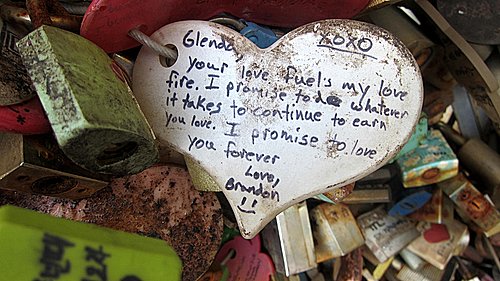 Glenda XOXO
your love fuel's my love
fire. I promise to do whatever
it takes to continue to earn
you love. I promise to love
you forever
Love,
Brandon